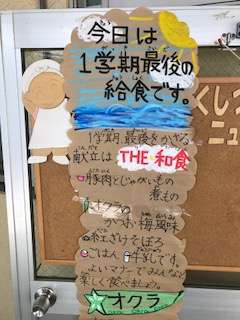 今日は
1学期最後の
給食です。
1学期最後をかざる
献立は THE 和食
豚肉とじゃがいもの
煮もの
オクラの
かつお梅風味
紅ざけそぼろ
ごはん 牛乳です。
よいマナーでみんなで
楽しく食べましょう。
オクラ